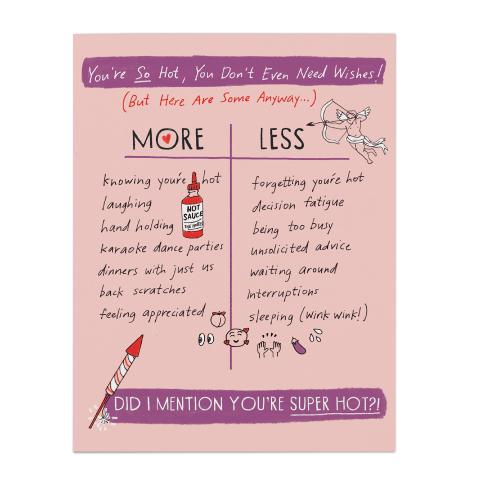 You're So Hot, You Don't Even Need Wishes!
(But Here Are Some Anyway...)
MORE
LESS
knowing you're hot
laughing
hand holding
karaoke dance parties
dinners with just us
back scratches
feeling appreciated
HOT
SAUCE
forgetting you're hot
decision fatigue
being too busy
unsolicited advice
waiting around
interruptions
sleeping (wink wink!)
DID I MENTION YOU'RE SUPER HOT?!